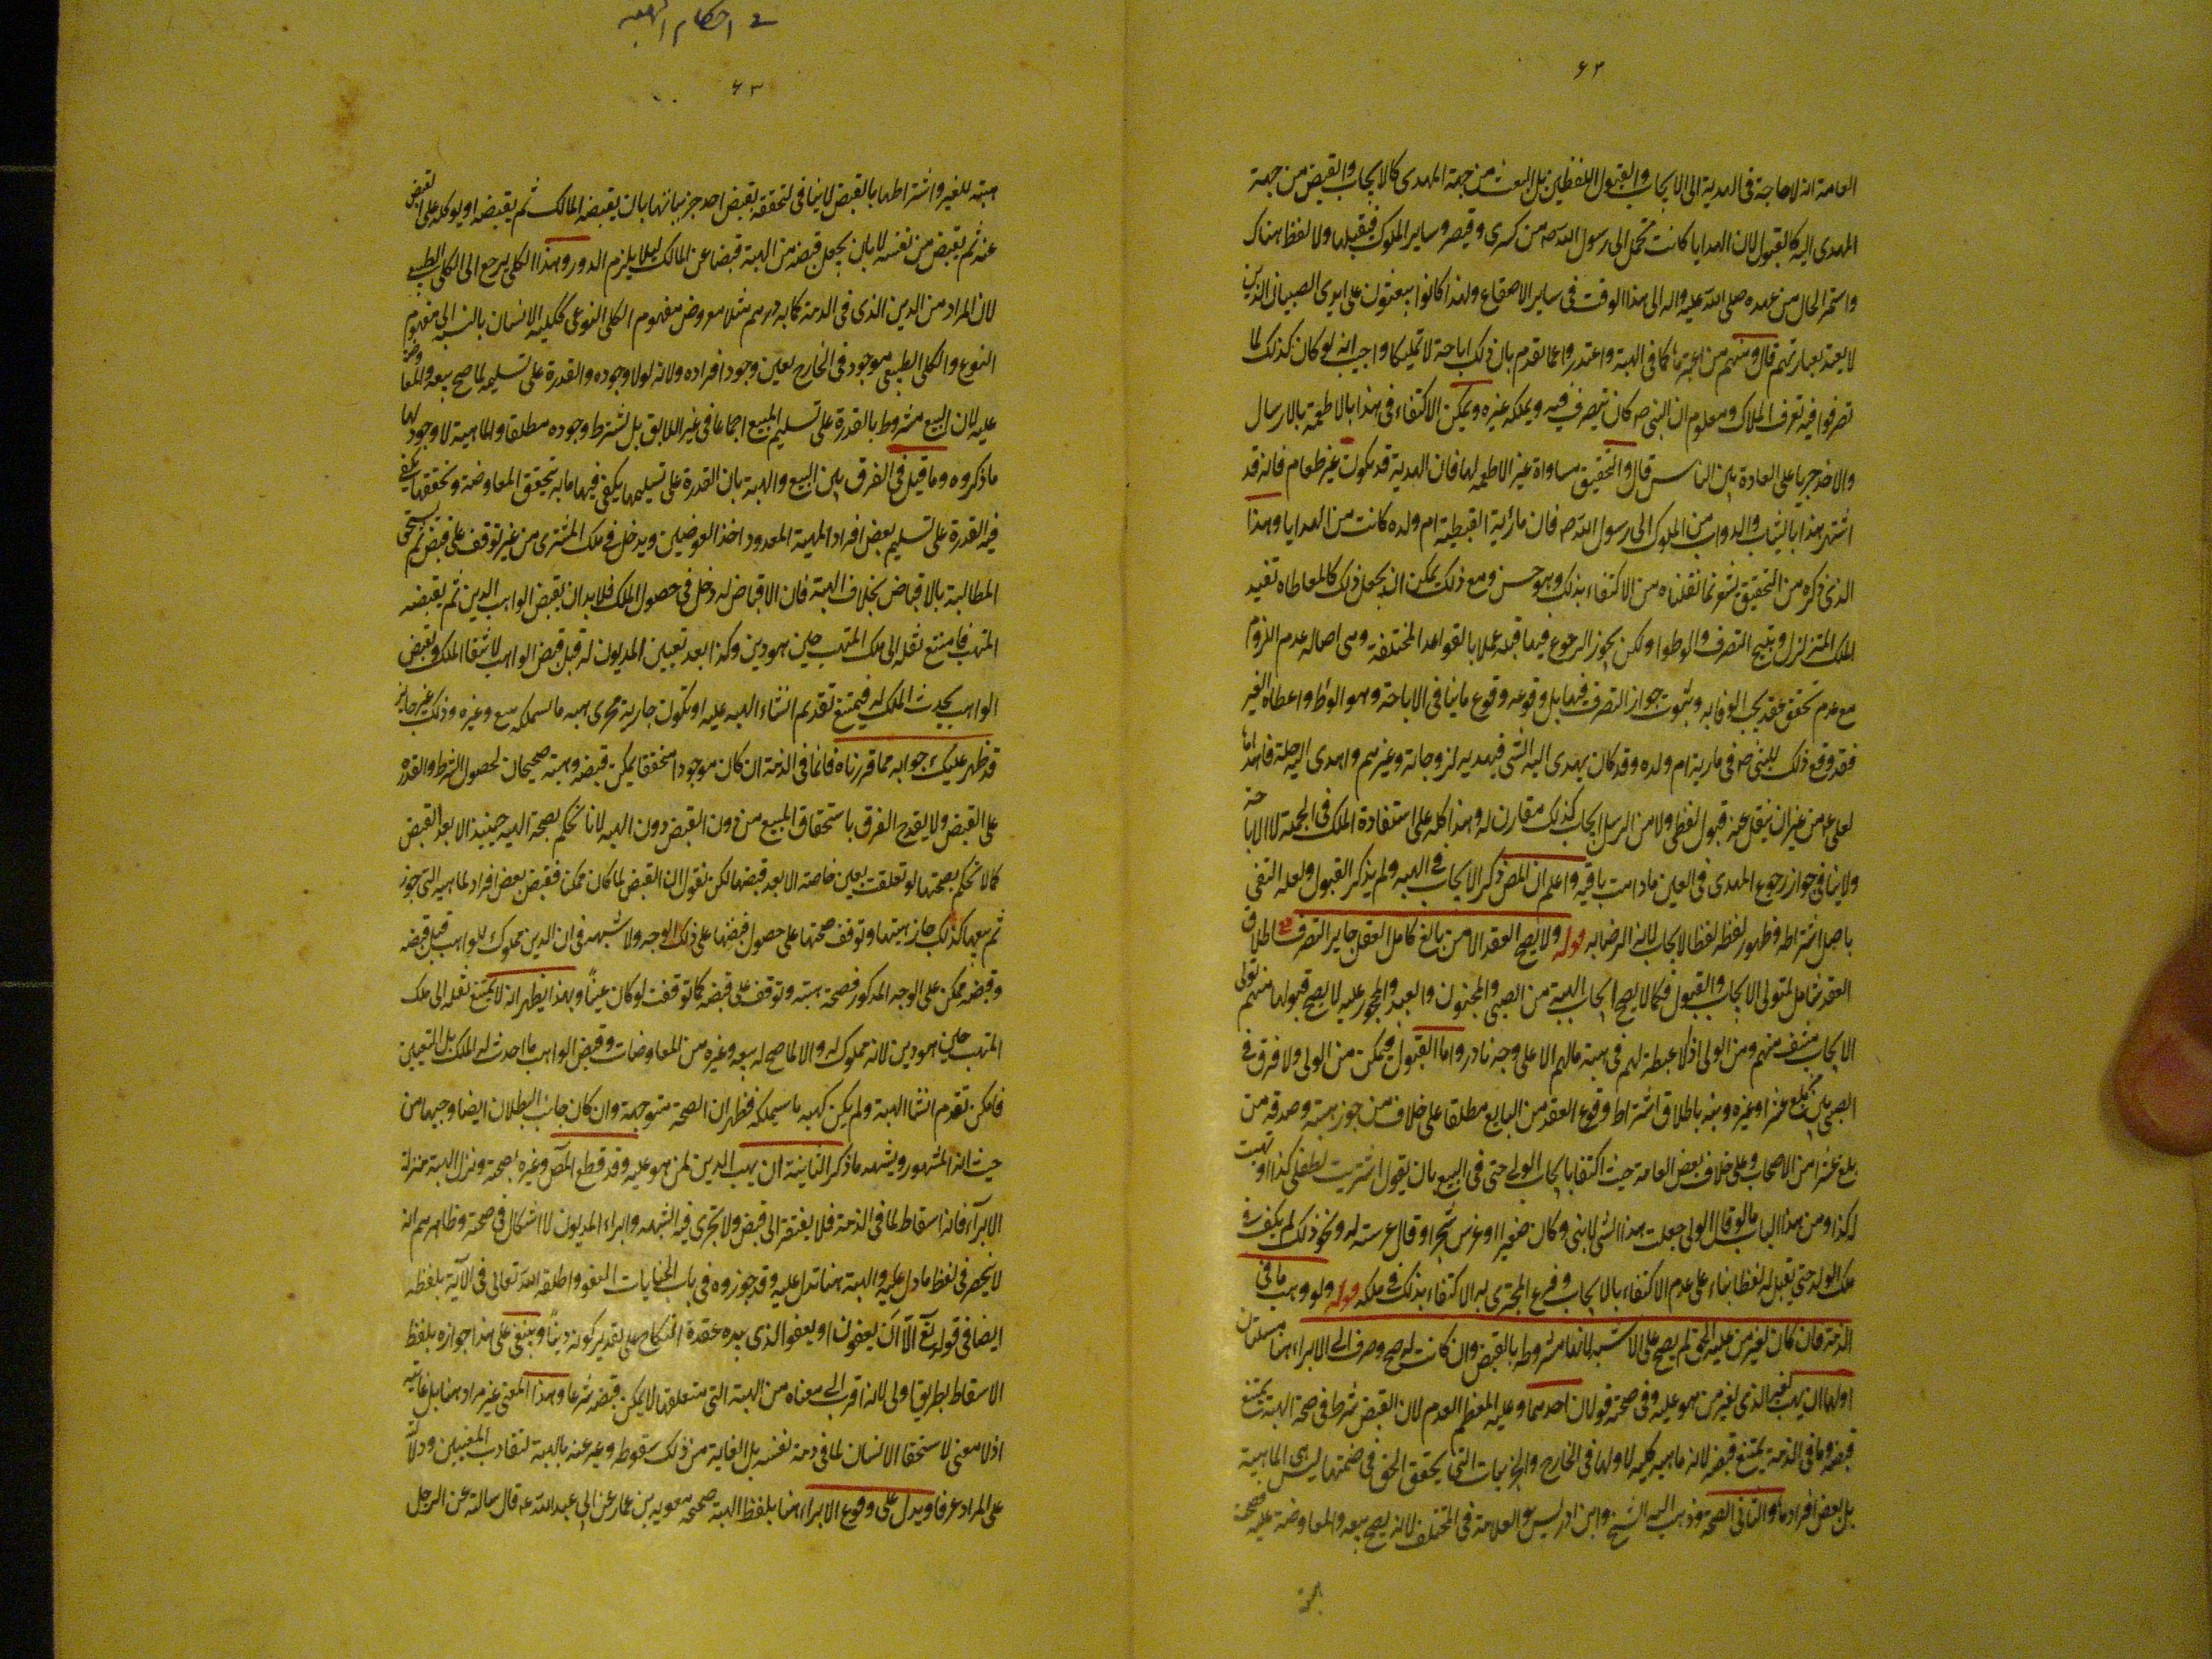 ٦٢
العامة انه لا حاجة فى الهدية الى الايجاب والقبول اللفظين بل البعث من جهة المهدى كالايجاب والقبض من جهة
المهدى اليه كالقبول لان الهدايا كانت تحمل الى رسول الله ص من كسرى وقيصر وساير الملوك فيقبلها ولا لفظ هناك
واستمر الحال من عهده صلى الله عليه واله الى هذا الوقت فى ساير الاصقاع ولهذا كانوا يبعثون على ايدى الصبيان الذين
لا يعتد بعبارتهم قال ومنهم من اعتبرهما كما فى الهبة واعتذروا عما تقدم بان ذلك اباحة لا تمليكا واجيب انه لو كان كذلك لما
تصرفوا فيه تصرف الملاك ومعلوم ان النبى ص كان يتصرف فيه ويملكه غيره ويمكن الاكتفاء فى هدايا الاطعمة بالارسال
والاخذ جريا على العادة بين الناس قال والتحقيق مساواة غير الاطعمه لها فان الهدية قد يكون غير طعام فانه قد
اشتهر هدايا الثياب والدواب من الملوك الى رسول الله ص فان مارية القبطية ام ولده كانت من الهدايا وهذا
الذى ذكره من التحقيق يشعر بما نقلناه من الاكتفاء بذلك وهو حسن ومع ذلك يمكن ان يجعل ذلك كالمعاطاه تفيد
الملك المتزلزل ويبيح التصرف والوطوا ولكن يجوز الرجوع فيها قبله عملا بالقواعد المختلفة وهى اصالة عدم اللزوم
مع عدم تحقق عقد يجب الوفا به وثبوت جواز التصرف فيها بل وقوعه وقوع ما ينافى الاباحة وهو الوطو واعطاه الغير
فقد وقع ذلك للنبى ص فى مارية ام ولده وقد كان يهدى اليه الشى فيهديه لزوجاته وغيرهم واهدى اليه حلة فاهداها
لعلى ع من غير ان ينقل عنه قبول لفظى ولا من الرسل ايجاب كذلك مقارن له وهذا كله على استفادة الملك فى الجملة لا الاباحة
ولا ينافى جواز رجوع المهدى فى العين ما دامت باقيه واعلم ان المص ذكر الايجاب فى الهبه ولم يذكر القبول ولعله اكتفى
باصل اشتراطه وظهور لفظه لفظا لايجاب لانه الرضا به قوله ولا يصح العقد الا من بالغ كامل العقل جايز التصرف اطلاق
العقد شامل لمتولى الايجاب والقبول فكما لا يصح ايجاب الهبة من الصبى والمجنون والعبد والمحجور عليه لا يصح قبولها منهم تولى
الايجاب منتف منهم ومن الولى اذ لا غبطة لهم فى هبة مالهم الا على وجه نادر واما القبول فيمكن من الولى ولا فرق فى
الصبى بين بلوغ عشرا وغيره ونبه باطلاق اشتراط وقوع العقد من البالغ مطلقا على خلاف من جوز هبته وصدقه من
بلغ عشرا من الاصحاب وعلى خلاف بعض العامة حيث اكتفا بايجاب الولى حتى فى البيع بان يقول اشتريت لطفلى كذا او بعت
له كذا ومن هذا الباب ما لو قال الولى جعلت هذا الشى لابنى وكان صغيرا او غرس شجرا وقال غرسته له ونحو ذلك لم يكف فى
ملك الولد حتى يقبل له لفظا بناء على عدم الاكتفاء بالايجاب وفرع المجتزى به الاكتفاء بذلك فى ملكه قوله ولو وهب ما فى
الذمة فان كان لغير من عليه الحق لم يصح على الاشبه لانها مشروطه بالقبض وان كانت له صح وصرف الى الابراء هنا مسئلتان
اولها ان يهب لغير الذى لغير من هو عليه وفى صحته قولان احدهما وعليه المعظم العدم لان القبض شرط فى صحة الهبة يمتنع
قبضه وما فى الذمة يمتنع قبضه لانه ماهية كلية لا ولها فى الخارج والجزئيات التى يتحقق الحق فى ضمنها ليس هى الماهية
بل بعض افرادها والثانى الصحه وذهب اليه الشيخ وابن ادريس والعلامة فى المختلف لانه يصح بيعه والمعاوضة عليه فصحة
فى احكام الهبه
٦٣
هبته للغير واشتراطها بالقبض لا ينافى لتحققه بقبض احد جزئياتها بان يقبضه المالك ثم يقبضه او يوكله على القبض
عنه ثم يقبض من نفسه لا بان يجعل قبضه من الهبة قبضا عن المالك ليلا يلزم الدور وهذا الكلى يرجع الى الكلى الطبيعى
لان المراد من الدين الذى فى الذمة كماية درهم مثلا معروض مفهوم الكلى النوعى ككلية الانسان بالنسبه الى مفهوم
النوع والكلى الطبيعى موجود فى الخارج بعين وجود افراده ولانه لولا وجوده والقدرة على تسليمه لما صح بيعه والمعاوضة
عليه لان البيع مشروط بالقدرة على تسليم المبيع اجماعا فى غير الابق بل نشترط وجوده مطلقا والماهية لا وجود لها
ما ذكروه وما قيل فى الفرق بين البيع والهبة بان القدرة على تسليمها يكفى فيها ما به تحقق المعاوضة وتحققها يكفى
فيه القدرة على تسليم بعض افراد المهية المعدود اخذ العوضين ويدخل فى ملك المشترى من غير توقف على قبض ثم يستحق
المطالبة بالاقباض بخلاف الهبة فان الاقباض له دخل فى حصول الملك فلا بد ان يقبض الواهب الدين ثم يقبضه
المتهب فامتنع نقله الى ملك المتهب حين هو دين وكذا بعد تعيين المديون له قبل قبض الواهب لانتفا الملك وبقبض
الواهب يحدث الملك له فيمتنع تقديم انشاء الهبه عليه او يكون جارية مجرى هبه ما سيملكه ببيع وغيره وذلك غير جايز
قد ظهر عليك جوابه مما قررناه فانما فى الذمة ان كان موجودا متحققا يمكن قبضه وهبته صحيحان لحصول الشرط والقدره
على القبض ولا يقدح الفرق باستحقاق المبيع من دون القبض دون الهبه لانا نحكم بصحة الهبه حينئذ الا بعد القبض
كما لا نحكم بصحتها لو تعلقت بعين خاصته الا بعد قبضها لكن نقول ان القبض لما كان ممكن فقبض بعض افراد لماهيه التى جوز
ثم بيعها كذلك جاز هبتها وتوقف صحتها على حصول قبضها على ذلك الوجه ولا شبهه فى ان الدين مملوك للواهب قبل قبضه
وقبضه ممكن على الوجه المذكور فصحة هبته وتوقف على قبضه كما توقفت لو كان عينا وبهذا يظهر انه لا يمتنع نقله الى ملك
المتهب حين هو دين لانه مملوك له والا لما صح له بيعه وغيره من المعاوضات وقبض الواهب ما احدث له الملك بل التعيين
فامكن تقدم انشا الهبة ولم يكن كهبه ما سيملكه فظهر ان الصحة متوجهة وان كان جانب البطلان ايضا وجيها من
حيث انه المشهور ويشهد ما ذكر الثانية ان يهب الدين لمن هو عليه وقد قطع المص وغيره بصحته ونزل الهبة منزلة
الابراء فانه اسقاط لما فى الذمة فلا يفتقر الى قبض ولا تجرى فيه الشبهه وابراء المديون لا اشكال فى صحته وظاهرهم انه
لا ينحصر فى لفظ ما دل عليه والهبة هنا تدل عليه وقد جوزوه فى باب الجنايات العفو واطلقه الله تعالى فى الآية بلفظه
ايضا فى قوله تع الا ان يعفون او يعفو الذى بيده عقدة النكاح على تقدير كونه دينا وينبغى على هذا جوازه بلفظ
الاسقاط بطريق اولى لانه اقرب الى معناه من الهبة التى متعلقها لا يمكن قبضه شرعا وهذا المعنى غير مراد هنا بل غايته
اذ لا معنى لاستحقا الانسان لما فى ذمة نفسه بل الغاية من ذلك سقوطه وعبر عنه بالهبة لتقارب المعنيين ودلالة
على المراد عرفا ويدل على وقوع الابراء هنا بلفظ الهبة صحيحه معويه بن عمار عن ابى عبد الله ع قال سالته عن الرجل